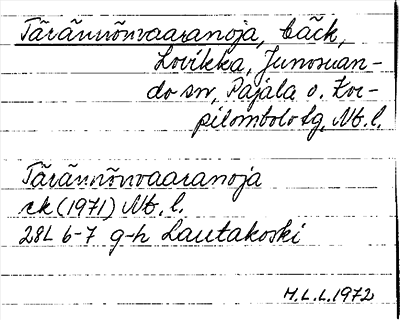 Tärännönvaaranoja, bäck,
Lovikka, Junosuan-
do sn, Pajala o. Kor-
pilombolo tg, Nb. l.
Tärännönvaaranoja
rk (1971) Nb. l.
28L 6-7 g-h Lautakoski
H.L.L. 1972